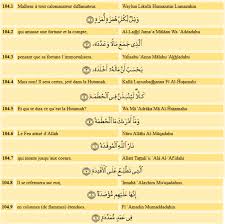 104.1 Malheur à tout calomniateur diffamateur, Waylun Likulli Humazatin Lumazahin
وَيْلٌ لِّكُلِّ هُمَزَةٍ لُّمَزَةٍ
104.2 qui amasse une fortune et la compte, Al-Ladhī Jama`a Mālāan Wa `Addadahu
الَّذِي جَمَعَ مَالًا وَعَدَّدَهُ
104.3 pensant que sa fortune l'immortalisera. Yaĥsabu 'Anna Mālahu 'Akhladahu
يَحْسَبُ أَنَّ مَالَهُ أَخْلَدَهُ
104.4 Mais non! Il sera certes, jeté dans la Houtamah. Kallā Layunbadhanna Fī Al-Ĥuţamahi
كَلَّا لَيُنبَذَنَّ فِي الْحُطَمَةِ
104.5 Et qui te dira ce qu'est la Houtamah? Wa Mā 'Adrāka Mā Al-Ĥuţamahu
وَمَا أَدْرَاكَ مَا الْحُطَمَةُ
104.6 Le Feu attisé d'Allah Nāru Allāhi Al-Mūqadahu
نَارُ اللَّهِ الْمُوقَدَةُ
104.7 qui monte jusqu'aux coeurs. Allatī Taţţali`u `Alá Al-'Af'idahi
الَّتِي تَطَّلِعُ عَلَى الْأَفْئِدَةِ
104.8 Il se refermera sur eux, 'Innahā `Alayhim Mu'uşadahun
إِنَّهَا عَلَيْهِم مُّؤْصَدَةٌ
104.9 en colonnes (de flammes) étendues. Fī `Amadin Mumaddadahin
فِي عَمَدٍ مُّمَدَّدَةٍ